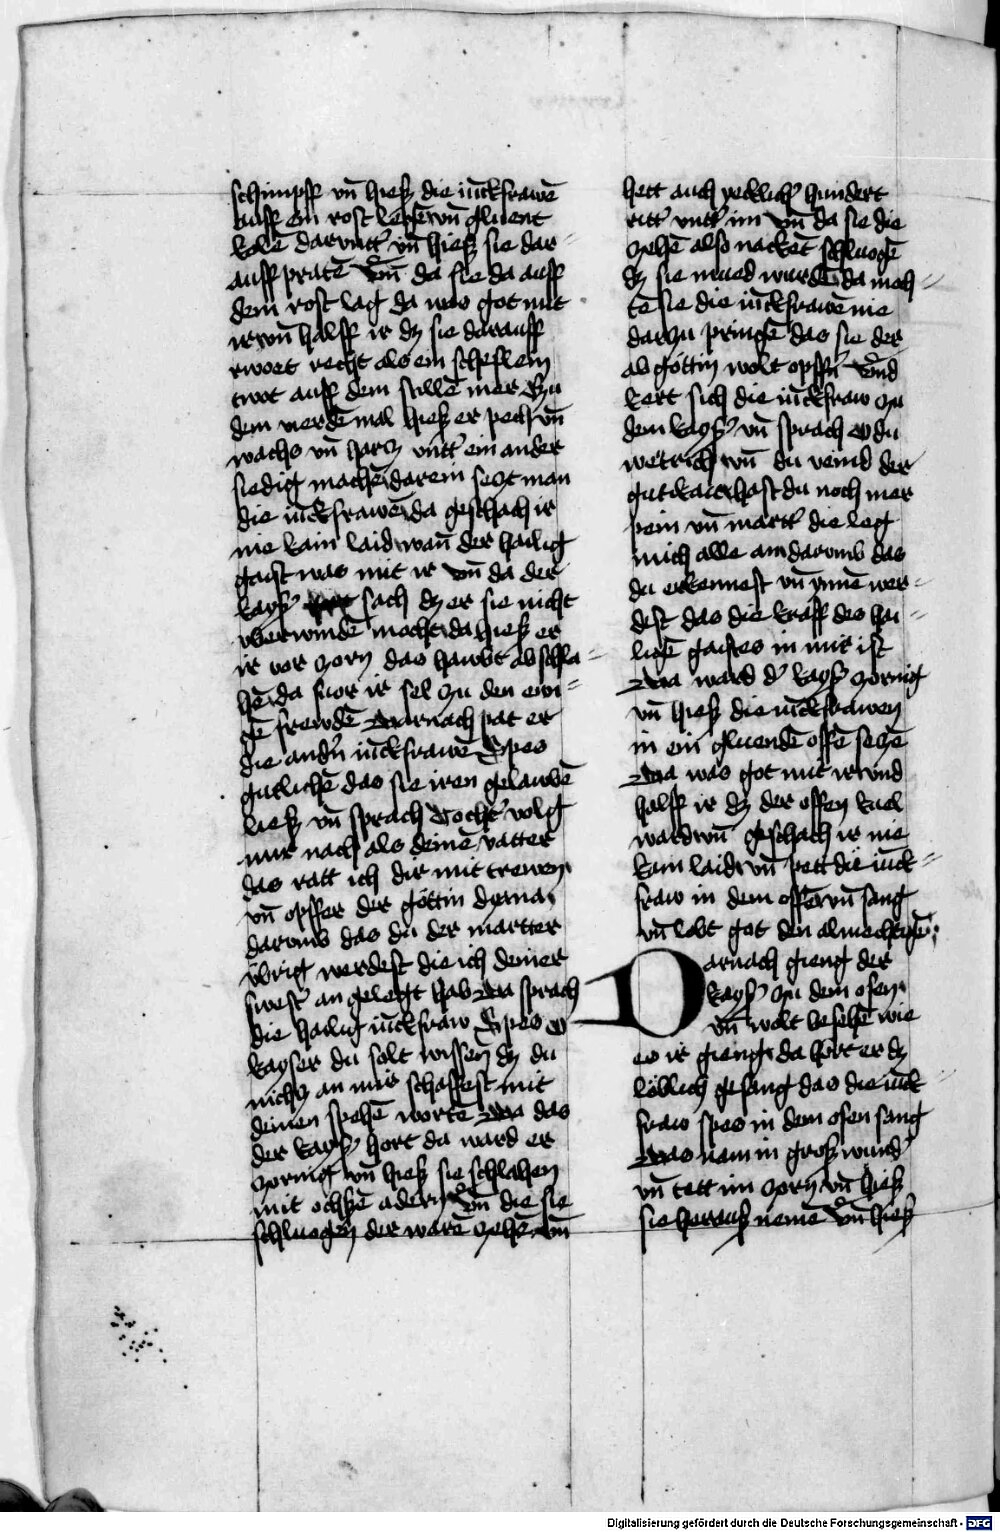 schimpff vn̄ hieß die iūckfrawē
auff ein rost legē vn̄ gluent
kolē daruntt' vn̄ hieß sie dar⸗
auff pratē Vn̄ da sie da auff
dem rost lag da was got mit
ir vn̄ halff ir dz sie darauff
rwort recht als ein scheflein
twot auff dem stillē mer Zu
dem vierdē mal hieß er pech vn̄
wachs vn̄ harcz vntt' ein ander
siedig machē darein seczt man
die iūckfrawē da geschach ir
nie kain laid wan̄ der hailig
gaist was mit ir vn̄ da der
kays' sach dz er sie nicht
vberwindē mocht da hieß er
ir vor zorn das hawbt abschla⸗
hē da fuor ir sel zu den ewi⸗
gē frewdē Darnach pat er
die andn̄ iūckfrawē Spes
gutlichē das sie iren gelaubē
ließ vn̄ sprach Tocht' volg
mir nach als deinē vatter
das ratt ich dir mit trewen
vn̄ opffer der göttin dyana
darumb das du der martter
übrig werdest die ich deiner
swest' an gelegt hab Da sprach
die hailig iūckfraw Spes O
kayser du solt wissen dz du
nichcz an mir schaffest mit
deinen spehē wortē Da das
der kays' hort da ward er
zornig vn̄ hieß sie schlahen
mit ochßē adern Vn̄ die sie
schluegen der warē zehē vn̄
hett auch yedlich' hundert
ritt' vntt' im Vn̄ da sie die
zehē also nackēt schluogē
dz sie mued wurdē da moch⸗
tē sie die iūckfrawē nie
darzu pringē das sie der
ab göttin wolt opffn̄ Vnd
kert sich die iūckfraw zu
dem kays' vn̄ sprach O du
wetrich vn̄ du veind der
gutkait hast du noch mer
pein vn̄ martt' die leg
mich alle an darumb das
du erkennest vn̄ ynnē wer⸗
dest das die krafft des hai⸗
ligē gaistes in mir ist
Da ward d' kays' zornig
vn̄ hieß die iūckfrawen
in ein gluendē offē seczē
Da was got mit ir vnd
halff ir dz der offen kuel
ward vn̄ geschach ir nie
kain laid vn̄ pett die iūck⸗
fraw in dem offē vn̄ sang
vn̄ lobt got den almechtigē
Darnach gieng der
kays' zu dem ofen
vn̄ wolt besehē wie
es ir gieng da hort er dz
löblich gesang das die iūck
fraw spes in dem ofen sang
Das nam in groß wund'
vn̄ tett im zorn vn̄ hieß
sie herauß nemē Vn̄ hieß
Digitalisierung gefördert durch die Deutsche Forschungsgemeinschaft - DFG